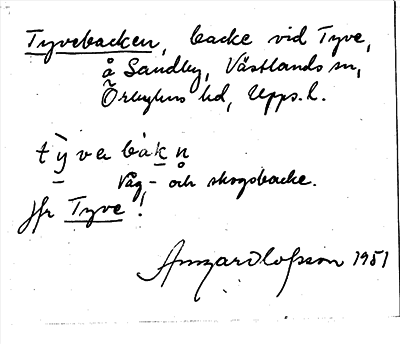 Tyvebacken, backe vid Tyve,
å Sandby, Västlands sn,
Örbyhus hd, Upps. l.
tỳvebakn
Väg- och skogsbacke.
Jfr Tyve!
1951